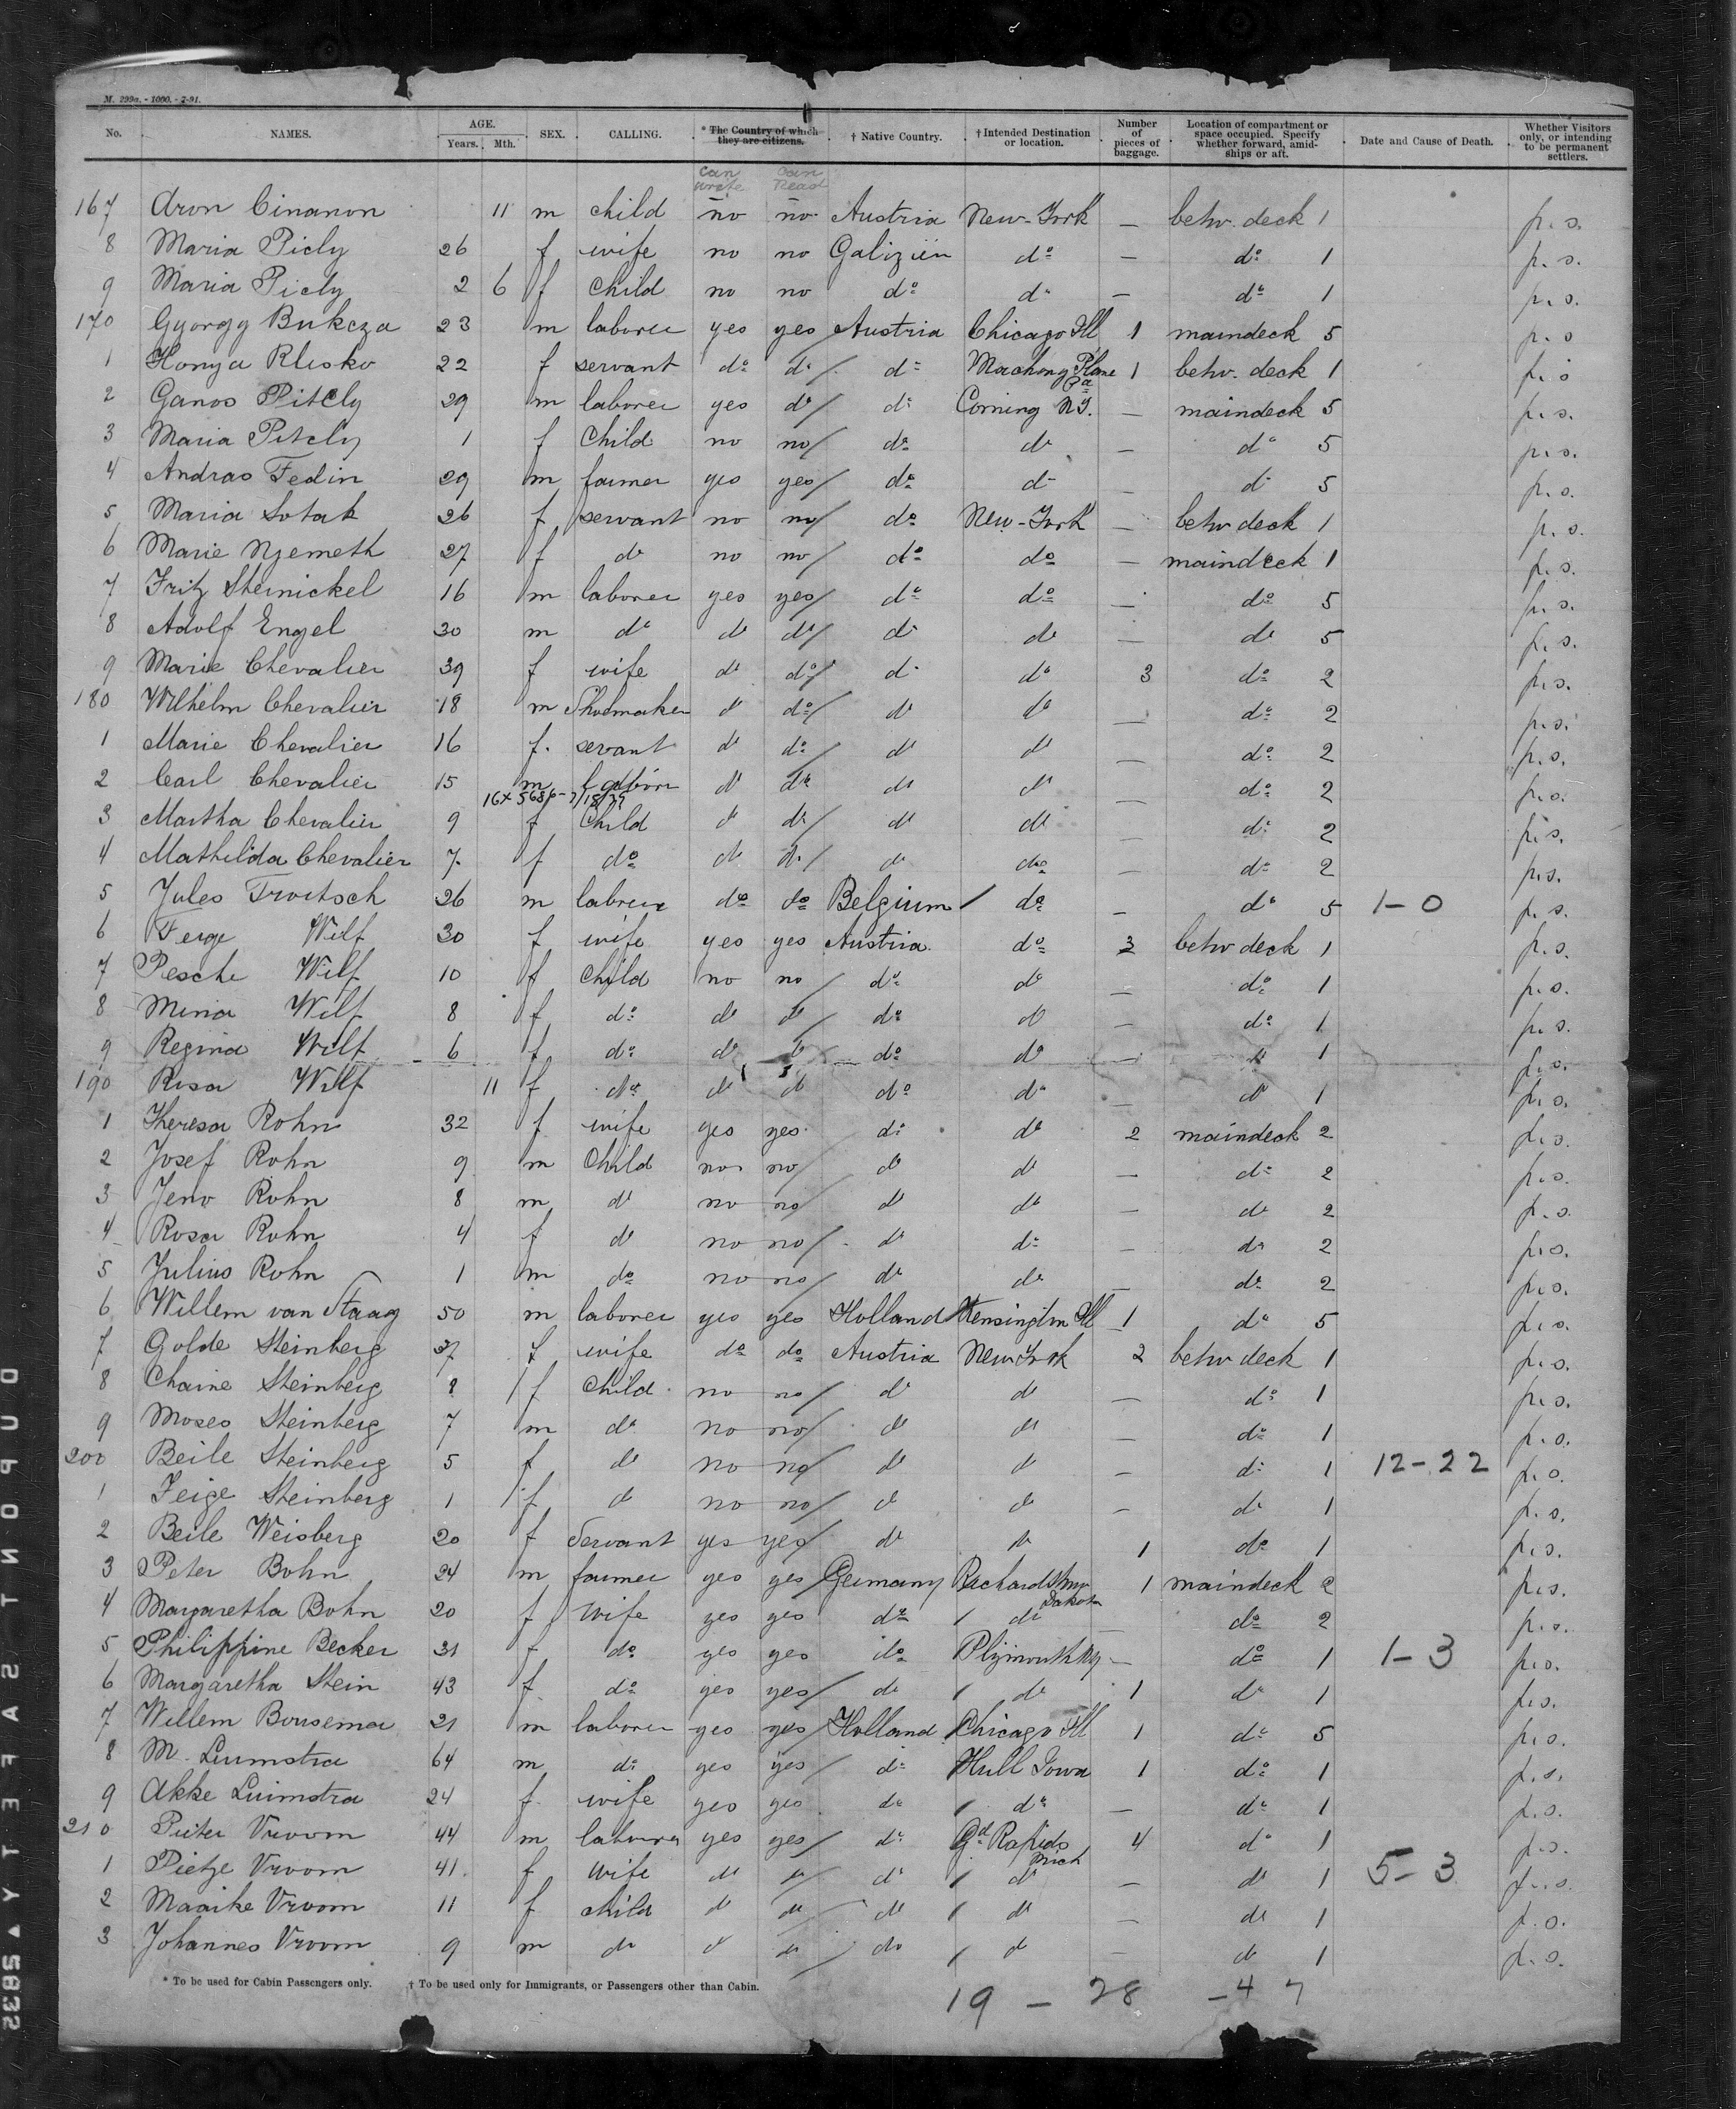 M. 299a. - 1000. - 7-91.
No. NAMES. AGE. Years. Mth. SEX. CALLING. * The Country of which they are citizens. † Native Country. † Intended Destination or location. Number of pieces of baggage. Location of compartment or space occupied. Specify whether forward, amidships or aft. Date and Cause of Death. Whether Visitors only, or intending to be permanent settlers.
Can write Can Read
167 Aron Cinamon 11 m child no no Austria New-York — betw. deck 1 p. s.
8 Maria Picly 26 f wife no no Galizien do — do 1 p. s.
9 Maria Picly 2 6 f child no no do do — do 1 p. s.
170 Gyorgy Bukcza 23 m laborer yes yes Austria Chicago Ill 1 maindeck 5 p. s
1 Honya Rlisko 22 f servant do do do Plane Pa 1 betw. deck 1 p. s
2 Ganos Pitcly 29 m laborer yes do do Corning NY. — maindeck 5 p. s.
3 Maria Pitcly 1 f child no no do do — do 5 p. s.
4 Andras Fedin 29 m farmer yes yes do do — do 5 p. s.
5 Maria Sotak 26 f servant no no do New-York — betw deck 1 p. s.
6 Marie Njemeth 27 f do no no do do — maindeck 1 p. s.
7 Fritz Steinickel 16 m laborer yes yes do do — do 5 p. s.
8 Adolf Engel 30 m do do do do do — do 5 p. s.
9 Marie Chevalier 39 f wife do do do do 3 do 2 p. s.
180 Wilhelm Chevalier 18 m Shoemaker do do do do — do 2 p. s.
1 Marie Chevalier 16 f. servant do do do do — do 2 p. s.
2 Carl Chevalier 15 m do do do do — do 2 p. s.
3 Martha Chevalier 9 f Child do do do do — do 2 p. s.
4 Mathilda Chevalier 7 f do do do do do — do 2 p. s.
5 Jules Troitsch 26 m laborer do do Belgium do — do 5 1-0 p. s.
6 Feige Wilf 30 f wife yes yes Austria do 3 betw deck 1 p. s.
7 Pesche Wilf 10 f child no no do do — do 1 p. s.
8 Mina Wilf 8 f do do do do do — do 1 p. s.
9 Regina Wilf 6 f do do do do do — do 1 p. s.
190 Rosa Wilf 11 f do do do do do — do 1 p. s.
1 Theresa Rohn 32 f wife yes yes do do 2 maindeck 2 p. s.
2 Josef Rohn 9 m Child no no do do — do 2 p. s.
3 Jeno Rohn 8 m do no no do do — do 2 p. s.
4 Rosa Rohn 4 f do no no do do — do 2 p. s.
5 Julius Rohn 1 m do no no do do — do 2 p. s.
6 Willem van Staag 50 m laborer yes yes Holland Kensington Ill 1 do 5 p. s.
7 Golde Steinberg 37 f wife do do Austria New York 2 betw deck 1 p. s.
8 Chaine Steinberg 8 f Child no no do do — do 1 p. s.
9 Moses Steinberg 7 m do no no do do — do 1 p. s.
200 Beile Steinberg 5 f do no no do do — do 1 12-22 p. s.
1 Feige Steinberg 1 f do no no do do — do 1 p. s.
2 Beile Weisberg 20 f Servant yes yes do do 1 do 1 p. s.
3 Peter Bohn 24 m farmer yes yes Germany Richardston Dakota 1 maindeck 2 p. s.
4 Margaretha Bohn 20 f wife yes yes do do — do 2 p. s.
5 Philippine Becker 31 f do yes yes do Plymouth — do 1 1-3 p. s.
6 Margaretha Stein 43 f do yes yes do do 1 do 1 p. s.
7 Willem Bousema 21 m laborer yes yes Holland Chicago Ill 1 do 5 p. s.
8 M. Luimstra 64 m do yes yes do Hull Iowa 1 do 1 p. s.
9 Akke Luimstra 24 f wife yes yes do do — do 1 p. s.
210 Pieter Vroom 44 m laborer yes yes do Gd Rapids Mich 4 do 1 p. s.
1 Pietje Vroom 41 f wife do do do do — do 1 5-3 p. s.
2 Maaike Vroom 11 f child do do do do — do 1 p. s.
3 Johannes Vroom 9 m do do do do do — do 1 p. s.
* To be used for Cabin Passengers only. † To be used only for Immigrants, or Passengers other than Cabin.
19 — 28 — 47
DUPONT SAFETY ▲ 2385